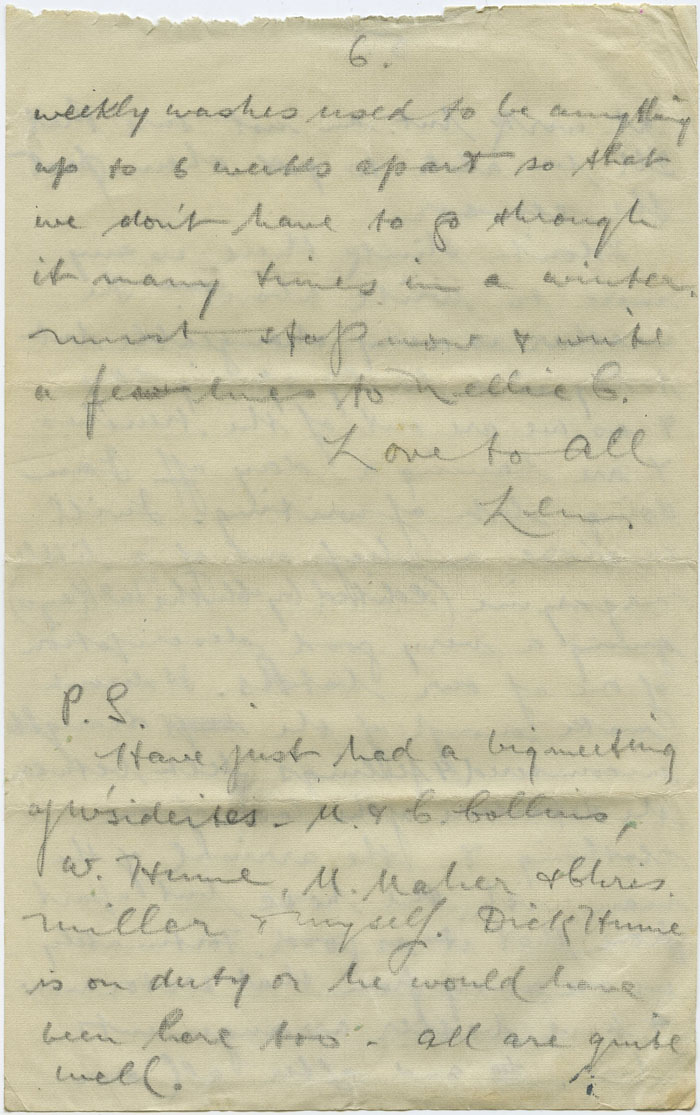 6.
weekly washes used to be anything
up to 6 weeks apart so that
we don't have to go through
it many times in a winter.
must stop now & write
a few lines to Nellie C.
Love to All
Len.
P.S.
Have just had a big meeting
of W'siderites - M. & C. Collins,
W. Hume, M. Maher & Chris.
Miller & myself. Dick Hume
is on duty or he would have
been here too - all are quite
well.